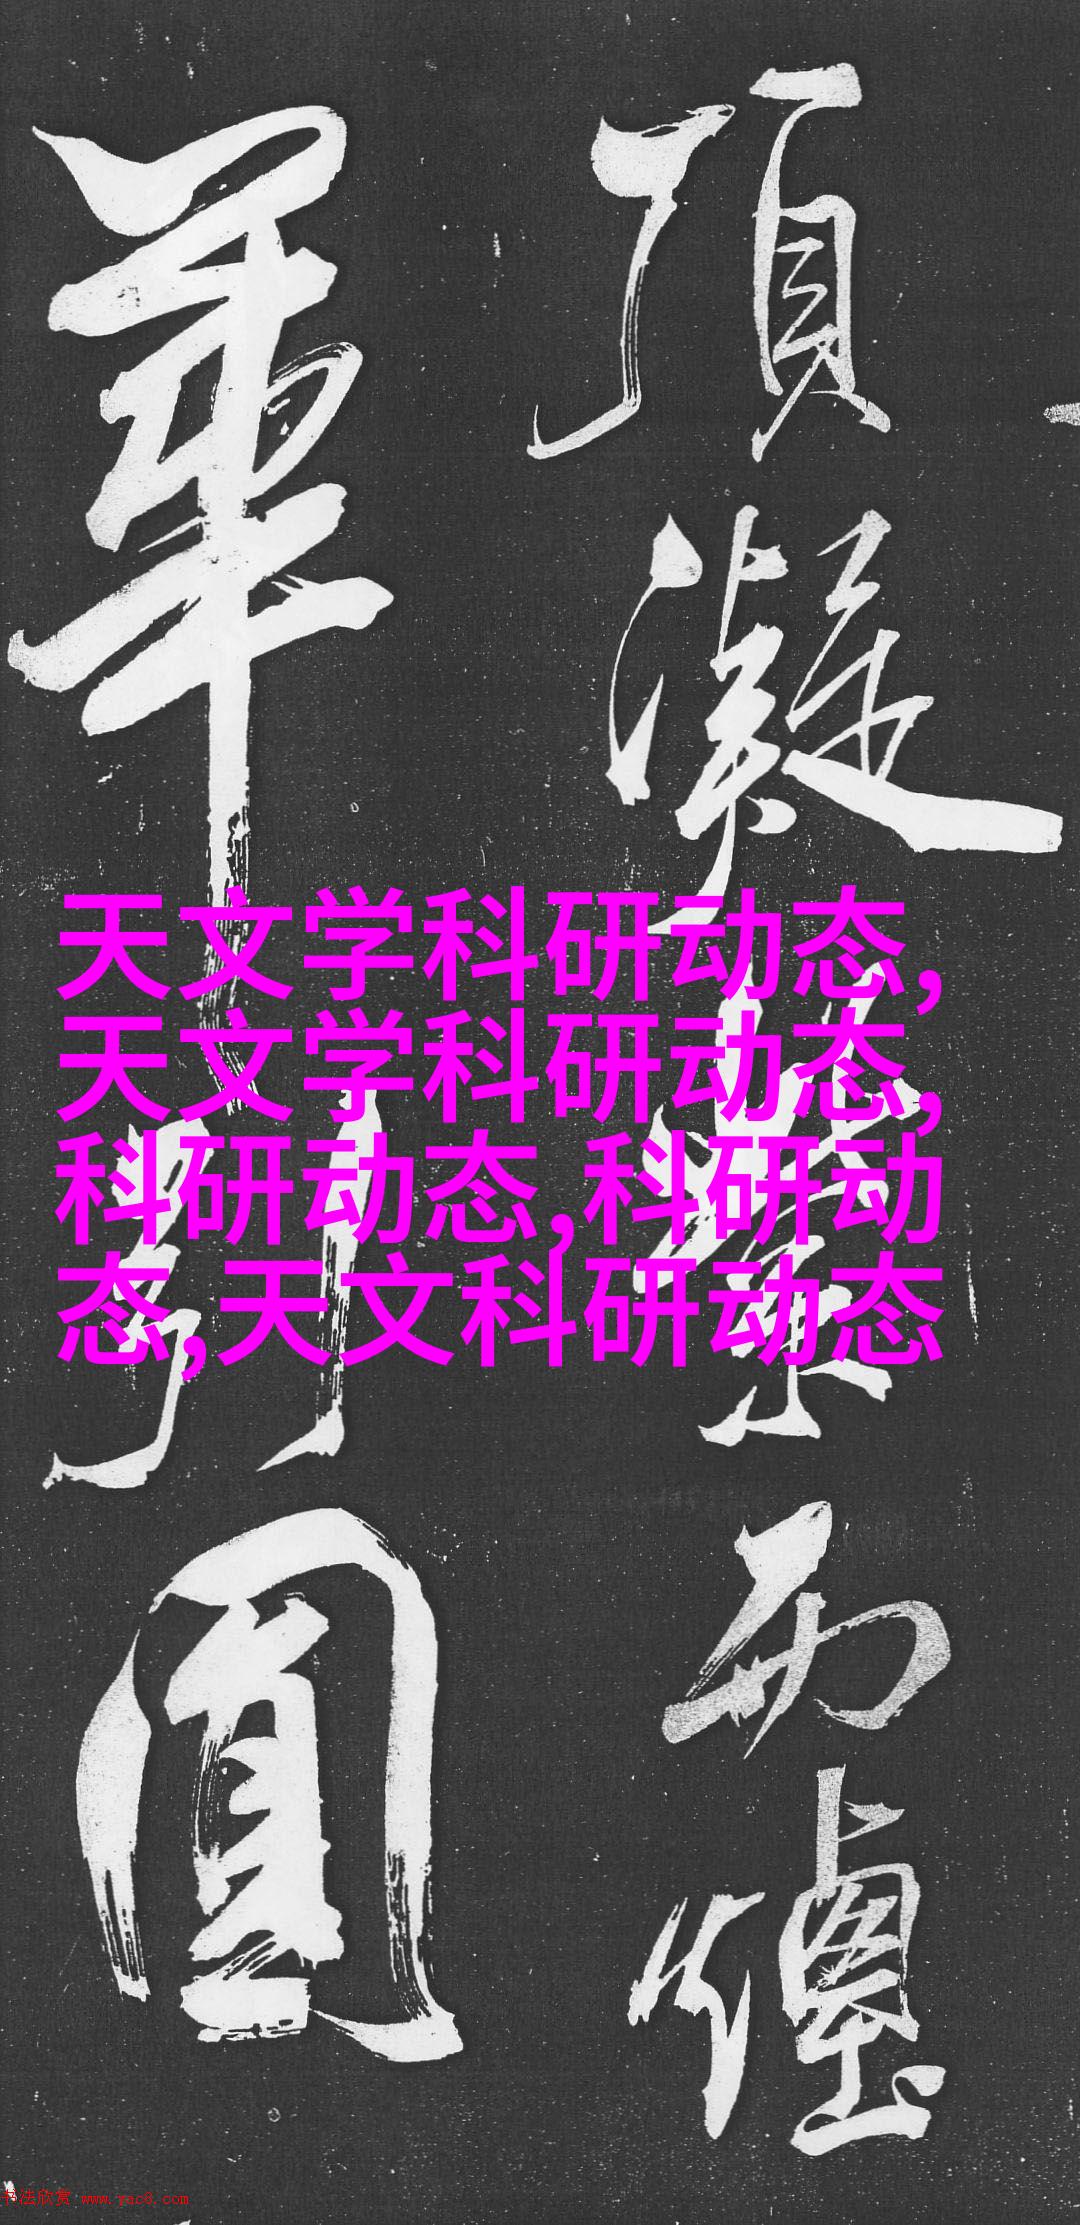 頂凝紫而煙
華引圓
天文学科研动态,
天文学科研动态,
科研动态,科研动
态,天文科研动态
书法欣赏 www.yac8.com